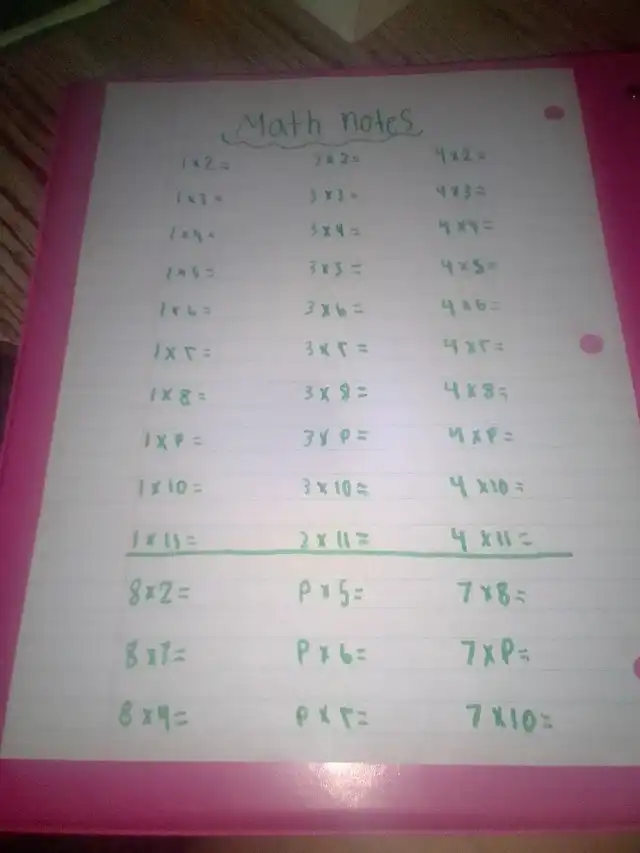 Math notes
1x2= 3x2= 4x2=
1x3= 3x3= 4x3=
1x4= 3x4= 4x4=
1x5= 3x5= 4x5=
1x6= 3x6= 4x6=
1x7= 3x7= 4x7=
1x8= 3x8= 4x8=
1x9= 3x9= 4x9=
1x10= 3x10= 4x10=
1x11= 2x11= 4x11=
8x2= 9x5= 7x8=
9x6= 7x9=
8x4= 9x7= 7x10=